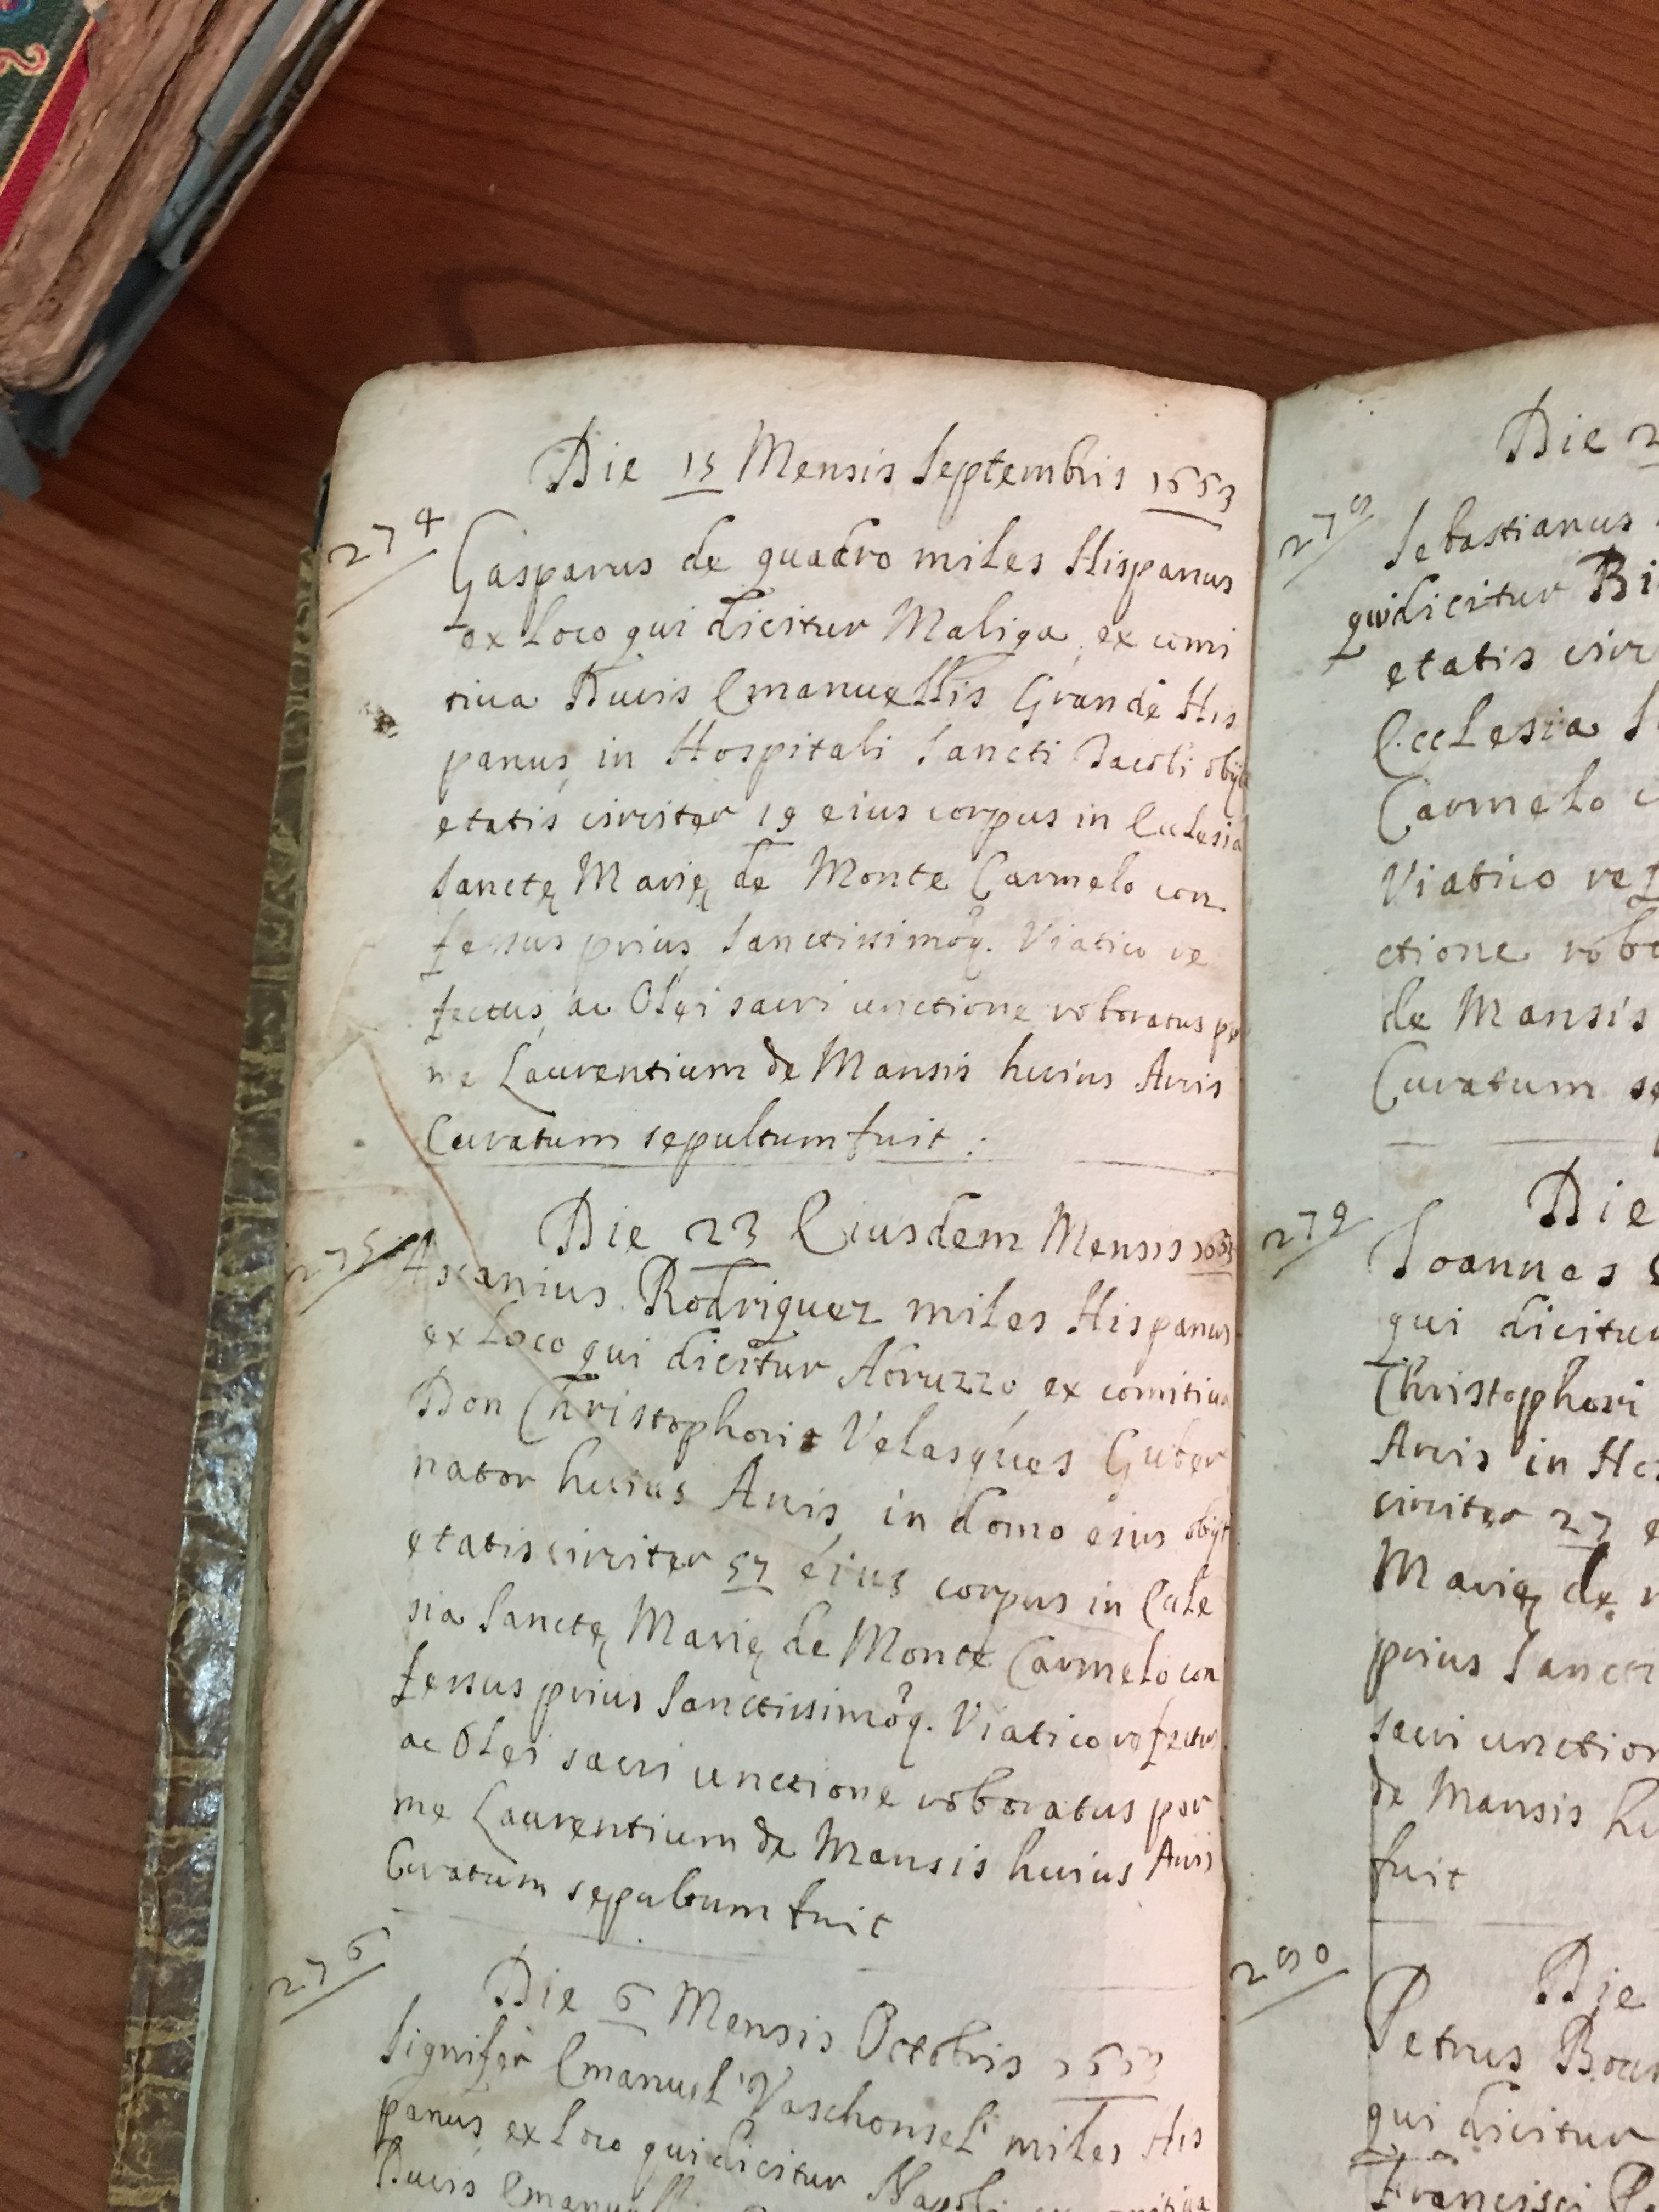 Die 15 Mensis Septembris 1653
274
Gasparus de quadro miles Hispanus
ex loco qui dicitur Maliga, ex comi
tiua Ducis Emanuellis Grande His
panus, in Hospitali Sancti Iacobi obijt
etatis circiter 19 eius corpus in Eclesia
Sanctę Marię de Monte Carmelo con
fessus prius, Sanctissimoq. Viatico re
fectus, ac Olei sacri unctione roboratus per
me Laurentium de Mansis huius Arcis
Curatum sepultum fuit.
Die 23 Eiusdem Mensis 1653
275
Ascanius Rodriguez miles Hispanus
ex loco qui dicitur Abruzzo, ex comitiua
Don Christophori Velasques Guber
nator huius Arcis, in domo eius obijt
etatis circiter 57 eius corpus in Ecle
sia Sanctę Marię de Monte Carmelo con
fessus prius Sanctissimoq. Viatico refectus
ac Olei sacri unctione roboratus per
me Laurentium de Mansis huius Arcis
Curatum sepultum fuit
276
Die 6 Mensis Octobris 1653
Signifer Emanuel Vaschonsel miles His
panus, ex loco qui dicitur Napoli
Ducis
Die 2
278
Sebastianus
qui dicitur Bi
etatis circ
Ecclesia S
Carmelo c
Viatico ref
ctione robo
de Mansis
Curatum se
Die
279
Ioannes
qui dicitur
Christophori
Arcis in Hos
circiter 27 e
Marię de
prius Sancti
sacri unction
de Mansis hu
fuit
280
Die
Petrus
qui dicitur
Francisci